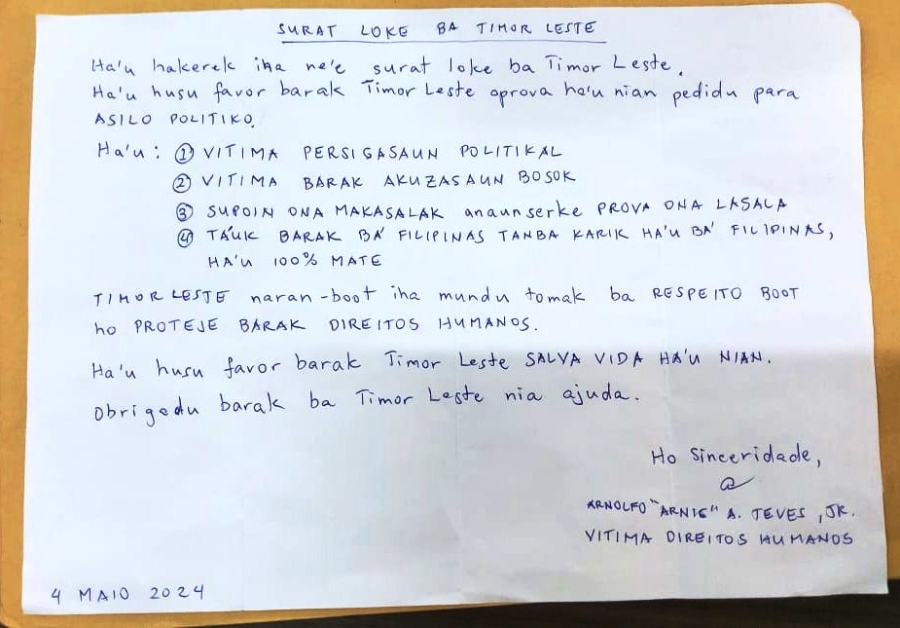 SURAT LOKE BA TIMOR LESTE
Ha'u hakerek iha ne'e surat loke ba Timor Leste.
Ha'u husu favor barak Timor Leste aprova ha'u nian pedidu para
ASILO POLITIKO.
Ha'u: ① VITIMA PERSIGASAUN POLITIKAL
② VITIMA BARAK AKUZASAUN BOSOK
③ SUPOIN ONA MAKASALAK anaunserke PROVA ONA LASALA
④ TA'UK BARAK BA' FILIPINAS TANBA KARIK HA'U BA' FILIPINAS,
HA'U 100% MATE
TIMOR LESTE naran-boot iha mundu tomak ba RESPEITO BOOT
ho PROTEJE BARAK DIREITOS HUMANOS.
Ha'u husu favor barak Timor Leste SALVA VIDA HA'U NIAN.
Obrigadu barak ba Timor Leste nia ajuda.
Ho Sinceridade,
ARNOLFO "ARNIE" A. TEVES, JR.
VITIMA DIREITOS HUMANOS
4 MAIO 2024